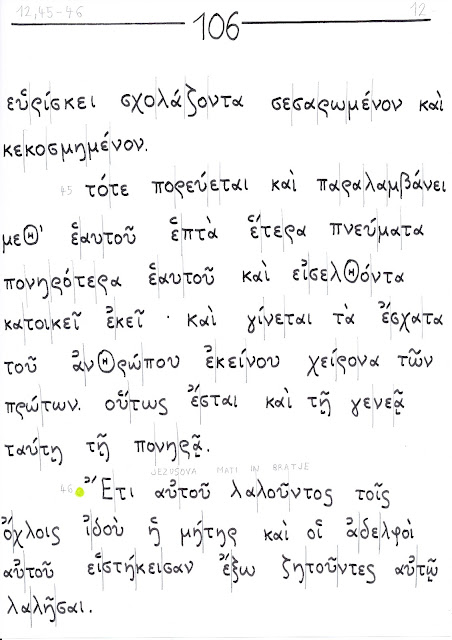 12,45-46
106
12
εὑρίσκει σχολάζοντα σεσαρωμένον καὶ
κεκοσμημένον.
45 τότε πορεύεται καὶ παραλαμβάνει
μεθ' ἑαυτοῦ ἑπτὰ ἕτερα πνεύματα
πονηρότερα ἑαυτοῦ καὶ εἰσελθόντα
κατοικεῖ ἐκεῖ · καὶ γίνεται τὰ ἔσχατα
τοῦ ἀνθρώπου ἐκείνου χείρονα τῶν
πρώτων. οὕτως ἔσται καὶ τῇ γενεᾷ
ταύτῃ τῇ πονηρᾷ.
JEZUSOVA MATI IN BRATJE
46 Ἔτι αὐτοῦ λαλοῦντος τοῖς
ὄχλοις ἰδοὺ ἡ μήτηρ καὶ οἱ ἀδελφοὶ
αὐτοῦ εἱστήκεισαν ἔξω ζητοῦντες αὐτῷ
λαλῆσαι.